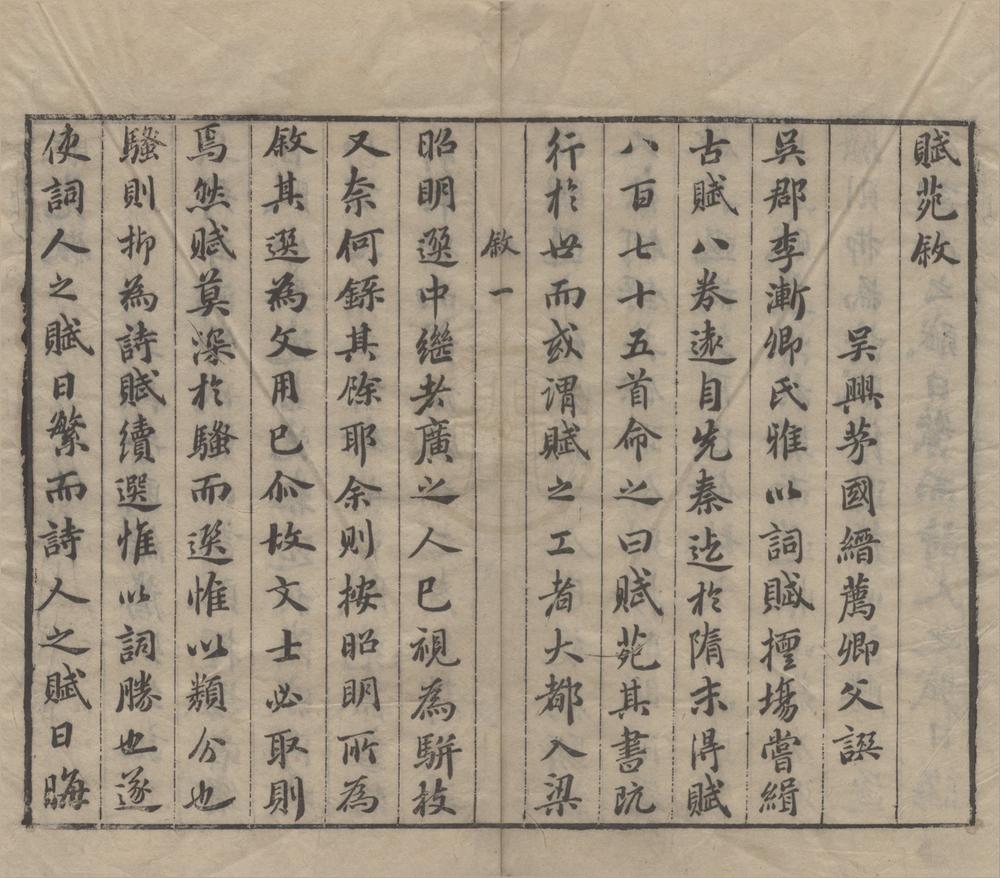 賦苑敘
吳興茅國縉薦卿父譔
吳郡李漸卿氏雅以詞賦擅塲嘗緝
古賦八卷遠自先秦迄於隋末得賦
八百七十五首命之曰賦苑其書阮
行於世而或謂賦之工者大都入梁
敘一
昭明選中継者廣之人已視為駢枝
又奈何鑠其餘耶余則按昭明所為
敘其選為文用已仚故文士必取則
焉然賦莫深於騷而選惟以類分也
騷則抑為詩賦續選惟以詞勝也遂
使詞人之賦日繁而詩人之賦日晦